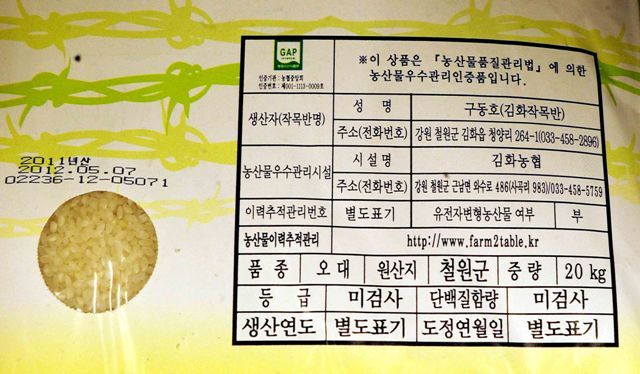 GAP
인증기관 : 농협중앙회
인증번호 : 제001-1113-0009호
※이 상품은 『농산물품질관리법』에 의한
농산물우수관리인증품입니다.
생산자(작목반명) 성 명 구동호(김화작목반)
주소(전화번호) 강원 철원군 김화읍 청양리 264-1(033-458-2896)
농산물우수관리시설 시설명 김화농협
주소(전화번호) 강원 철원군 근남면 와수로 486(사곡리 983)/033-458-5759
이력추적관리번호 별도표기 유전자변형농산물 여부 부
농산물이력추적관리 http://www.farm2table.kr
품 종 오 대 원산지 철원군 중 량 20 kg
등 급 미검사 단백질함량 미검사
생산연도 별도표기 도정연월일 별도표기
2011년산
2012.05.07
02236-12-05071